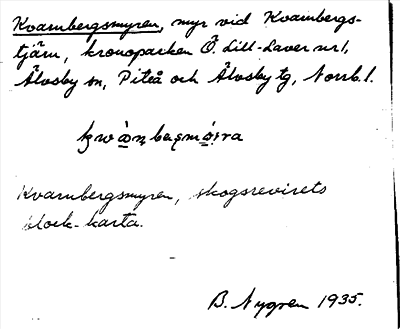 Kvarnbergsmyren, myr vid Kvarnbergs-
tjärn, kronoparken Ö. Lill-Laver nr 1,
Älvsby sn, Piteå och Älvsby tg, Norrb. l.
Kvarnbergsmyren, skogsrevirets
block-karta.
B. Nygren 1935.